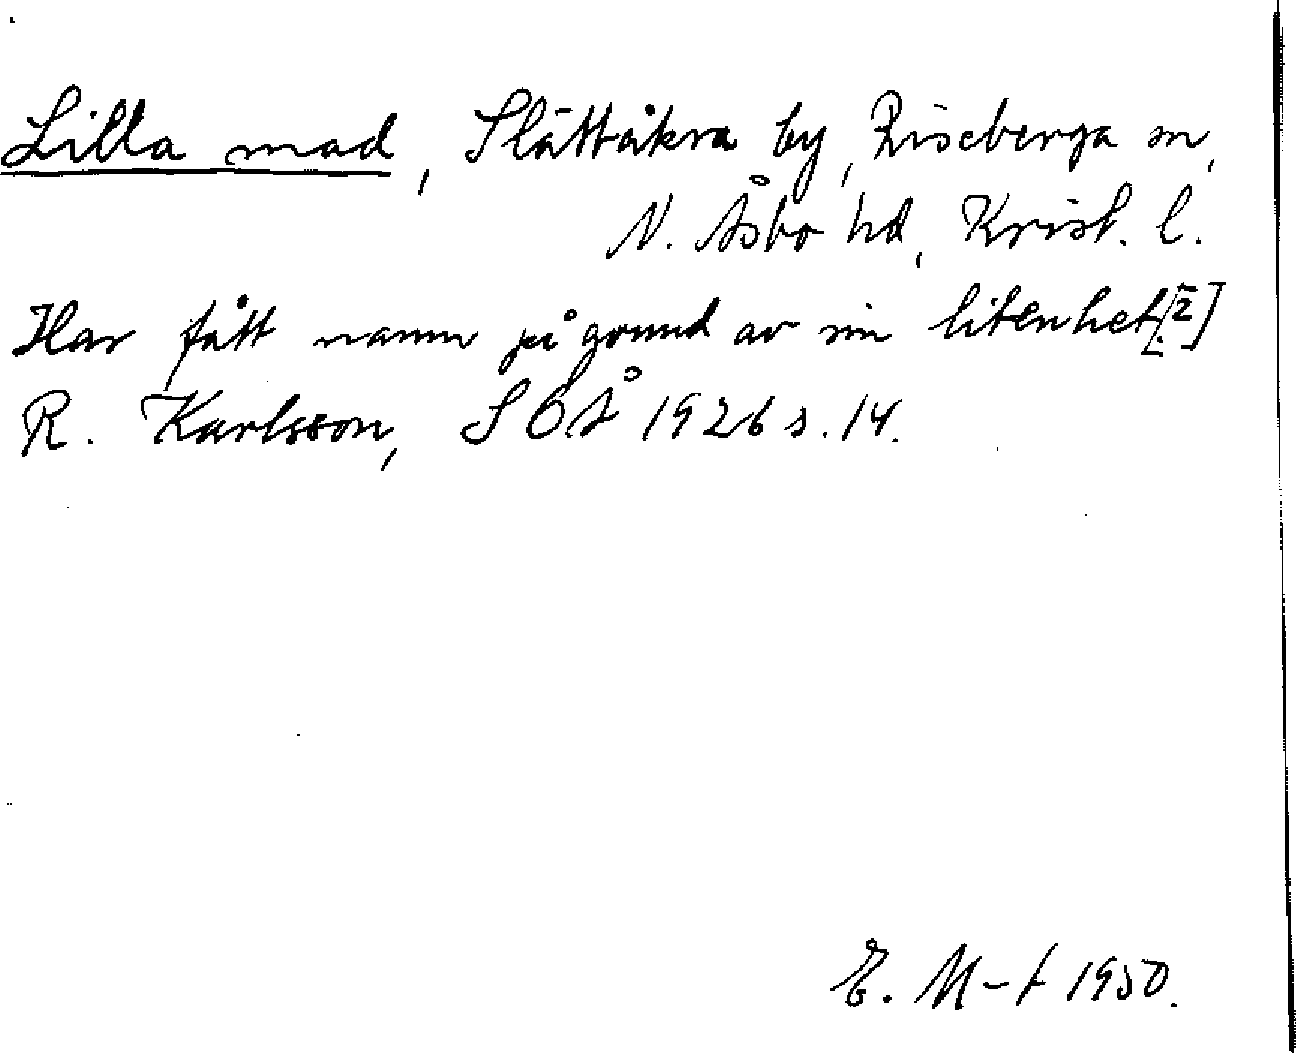 Lilla mad, Slättåkra by, Riseberga sn,
N. Åsbo hd, Krist. l.
Har fått namn på grund av sin litenhet[?]
R. Karlsson, SOÅ 1926 s. 14.
E. M-t 1950.